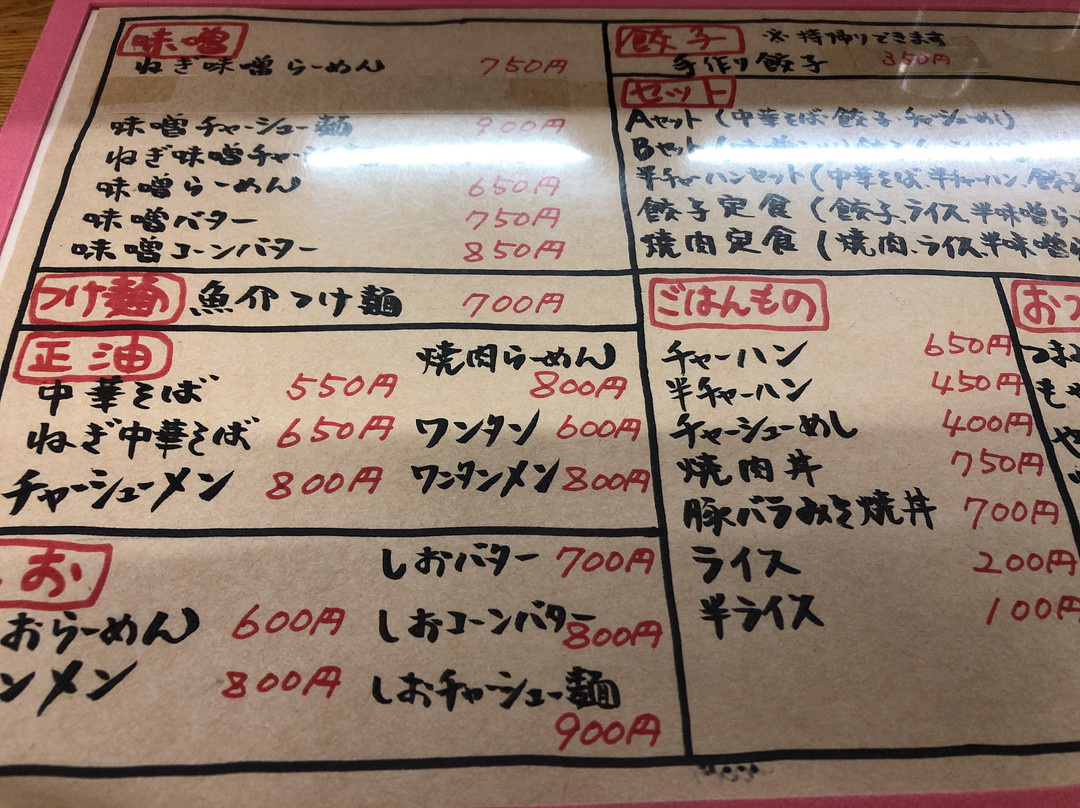 味噌
ねぎ味噌らーめん 750円
味噌チャーシュー麺 900円
ねぎ味噌チャー
味噌らーめん 650円
味噌バター 750円
味噌コーンバター 850円
つけ麺 魚介つけ麺 700円
正油
中華そば 550円
ねぎ中華そば 650円
チャーシューメン 800円
焼肉らーめん
800円
ワンタン 600円
ワンタンメン 800円
しお
おらーめん 600円
ンメン 800円
しおバター 700円
しおコーンバター 800円
しおチャーシュー麺
900円
餃子 ※持帰りできます
手作り餃子 350円
セット
Aセット(中華そば、餃子、チャーシューめし)
Bセット(
半チャーハンセット(中華そば、半チャーハン、餃子
餃子定食(餃子、ライス、半味噌ら
焼肉定食(焼肉、ライス、半味噌ら
ごはんもの
チャーハン 650円
半チャーハン 450円
チャーシューめし 400円
焼肉丼 750円
豚バラみそ焼丼 700円
ライス 200円
半ライス 100円
おつ
つま
もや
や